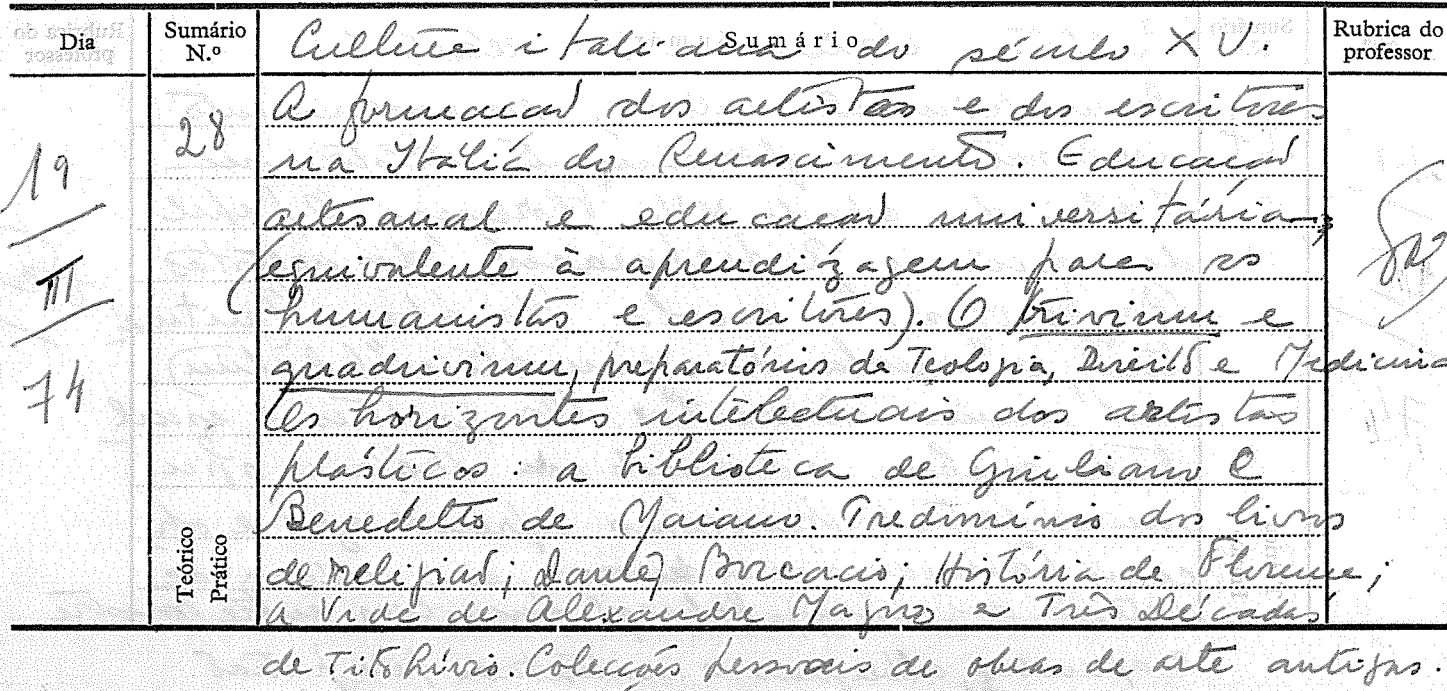 Dia
Sumário N.º
Sumário
Rubrica do professor
Cultura italiana do século XV.
19
III
74
28
A formação dos artistas e dos escritores
na Itália do Renascimento. Educação
artesanal e educação universitária
(equivalente à aprendizagem para os
humanistas e escritores). O trivium e
quadrivium, preparatórios da Teologia, Direito e Medicina
Os horizontes intelectuais dos artistas
plásticos: a biblioteca de Giuliano e
Benedetto de Maiano. Predomínio dos livros
de religião; Dante, Boccacio; História de Florença;
a Vida de Alexandre Magno e Três Décadas
de Tito Lívio. Colecções pessoais de obras de arte antigas.
Teórico
Prático